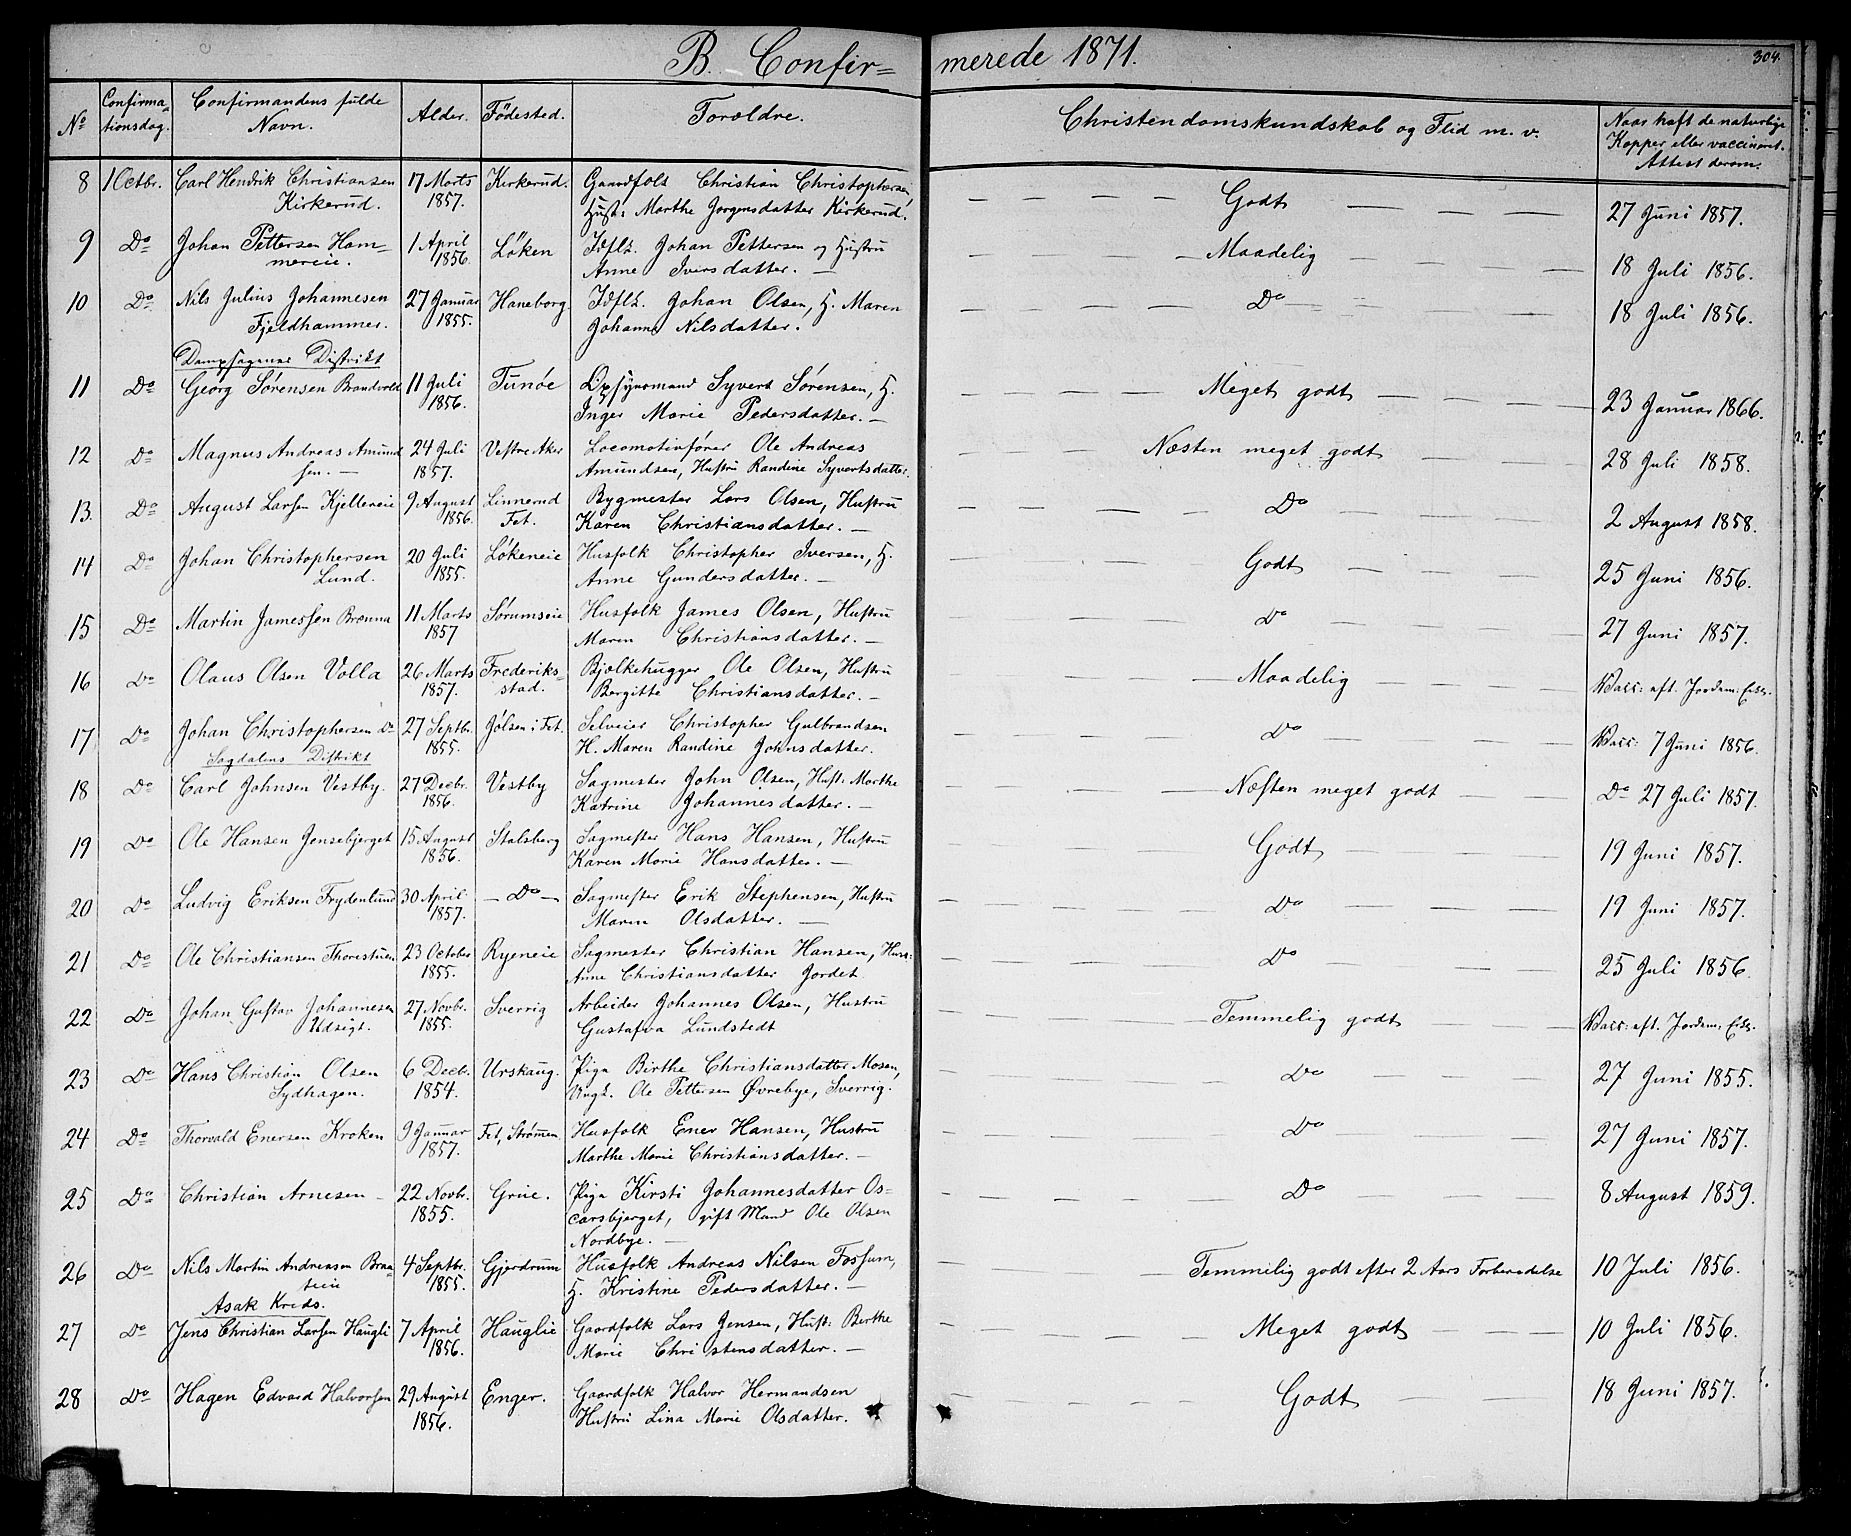 B. Confir= merede 1871.
304.
No Confirmationsdag. Confirmandens fulde Navn. Alder. Födested. Foræeldre. Christendomskundskab og Flid m. v. Naar haft de naturlige Kopper eller vaccineret. Attest derom.
8 1 Octbr. Carl Hendrik Christiansen 17 Marts Kirkerud. Gaardfolk Christian Christophersen, Godt 27 Juni 1857.
Kirkerud. 1857. Hust: Marthe Jørgensdatter Kirkerud.
9 Do Johan Pettersen Ham- 1 April Löken Idflk. Johan Pettersen og Hustru Maadelig 18 Juli 1856.
mereie. 1856. Anne Iversdatter. —
10 Do Nils Julius Johannesen 27 Januar Haneborg. Idflk. Johan Olsen, H. Maren Do 18 Juli 1856.
Fjeldhammer. 1855. Johanne Nilsdatter.
Dampsagenes Distrikt
11 Do Georg Sørensen Brandvold 11 Juli Tunøe Opsynsmand Syvert Sørensen, H. Meget godt 23 Januar 1866.
1856. Inger Marie Pedersdatter. —
12 Do Magnus Andreas Amund 24 Juli Vestre Aker Locomotivfører Ole Andreas Næsten meget godt 28 Juli 1858.
sen. — 1857. Amundsen, Hustru Randine Syvertsdatter.
13. Do August Larsen Kjellereie 9 August Linnerud Bygmester Lars Olsen, Hustru Do 2 August 1858.
1856. Fet. Karen Christiansdatter. —
14 Do Johan Christophersen 20 Juli Løkeneie Husfolk Christopher Iversen, H. Godt 25 Juni 1856.
Lund. 1855. Anne Gundersdatter. —
15 Do Martin Jamessen Brenna 11 Marts Sørumseie Husfolk James Olsen, Hustru Do 27 Juni 1857.
1857 Maren Christiansdatter. —
16 Do Olaus Olsen Volla 26 Marts Frederiks- Bjelkehugger Ole Olsen, Hustru Maadelig Vacc: eft. Jordem: Erkl.
1857. stad. Bergitte Christiansdatter. —
17 Do Johan Christophersen Do 27 Septbr. Jølsen i Fet. Selveier Christopher Gulbrandsen Do Vacc: 7 Juni 1856.
1855. H. Maren Randine Johnsdatter.
Sagdalens Distrikt
18 Do Carl Johnsen Vestby. 27 Decbr. Vestby Sagmester John Olsen, Hust: Marthe Næsten meget godt Do 27 Juli 1857.
1856. Katrine Johannesdatter. —
19 Do Ole Hansen Jensebjerget 15 August Stalsberg Sagmester Hans Hansen, Hustru Godt 19 Juni 1857.
1856. Karen Marie Hansdatter. —
20 Do Ludvig Eriksen Frydenlund 30 April — Do — Sagmester Erik Stephensen, Hustru Do 19 Juni 1857.
1857. Maren Olsdatter. —
21 Do Ole Christiansen Thorestuen 23 October Ryeneie Sagmester Christian Hansen, Hust: Do 25 Juli 1856.
1855. Anne Christiansdatter Jordet
22 Do Johan Gustav Johannesen 27 Novbr. Sverrig Arbeider Johannes Olsen, Hustru Temmelig godt Vacc: eft. Jordem: Erkl.
Udsigt. 1855. Gustafva Lundstedt
23 Do Hans Christian Olsen 6 Decbr. Urskaug. Piga Birthe Christiansdatter Mosen, Do 27 Juni 1855.
Sydhagen. 1854. Ungk. Ole Pettersen Øvrebye, Sverrig.
24 Do Thorvald Enersen Kroken 9 Januar Fet, Strømen Husfolk Ener Hansen, Hustru Do 27 Juni 1857.
1857. Marthe Marie Christiansdatter. —
25 Do Christian Arnesen — 22 Novbr. Grue. Piga Kirsti Johannesdatter Os- Do 8 August 1859.
1855. carsbjerget, gift Mand Ole Olsen
Nordbye. —
26 Do Nils Martin Andreasen Braa- 4 Septbr. Gjerdrum Husfolk Andreas Nilsen Fossum, Temmelig godt efter 2 Aars Forberedelse 10 Juli 1856.
teie 1855. H. Kristine Pedersdatter. —
Asak Kreds.
27 Do Jens Christian Larsen Haugli 7 April Hauglie Gaardfolk Lars Jensen, Hust: Berthe Meget godt 10 Juli 1856.
1856. Marie Christensdatter. —
28 Do Hagen Edvard Halvorsen 29 August Enger. Gaardfolk Halvor Hermandsen Godt 18 Juni 1857.
1856. Hustru Lina Marie Olsdatter.